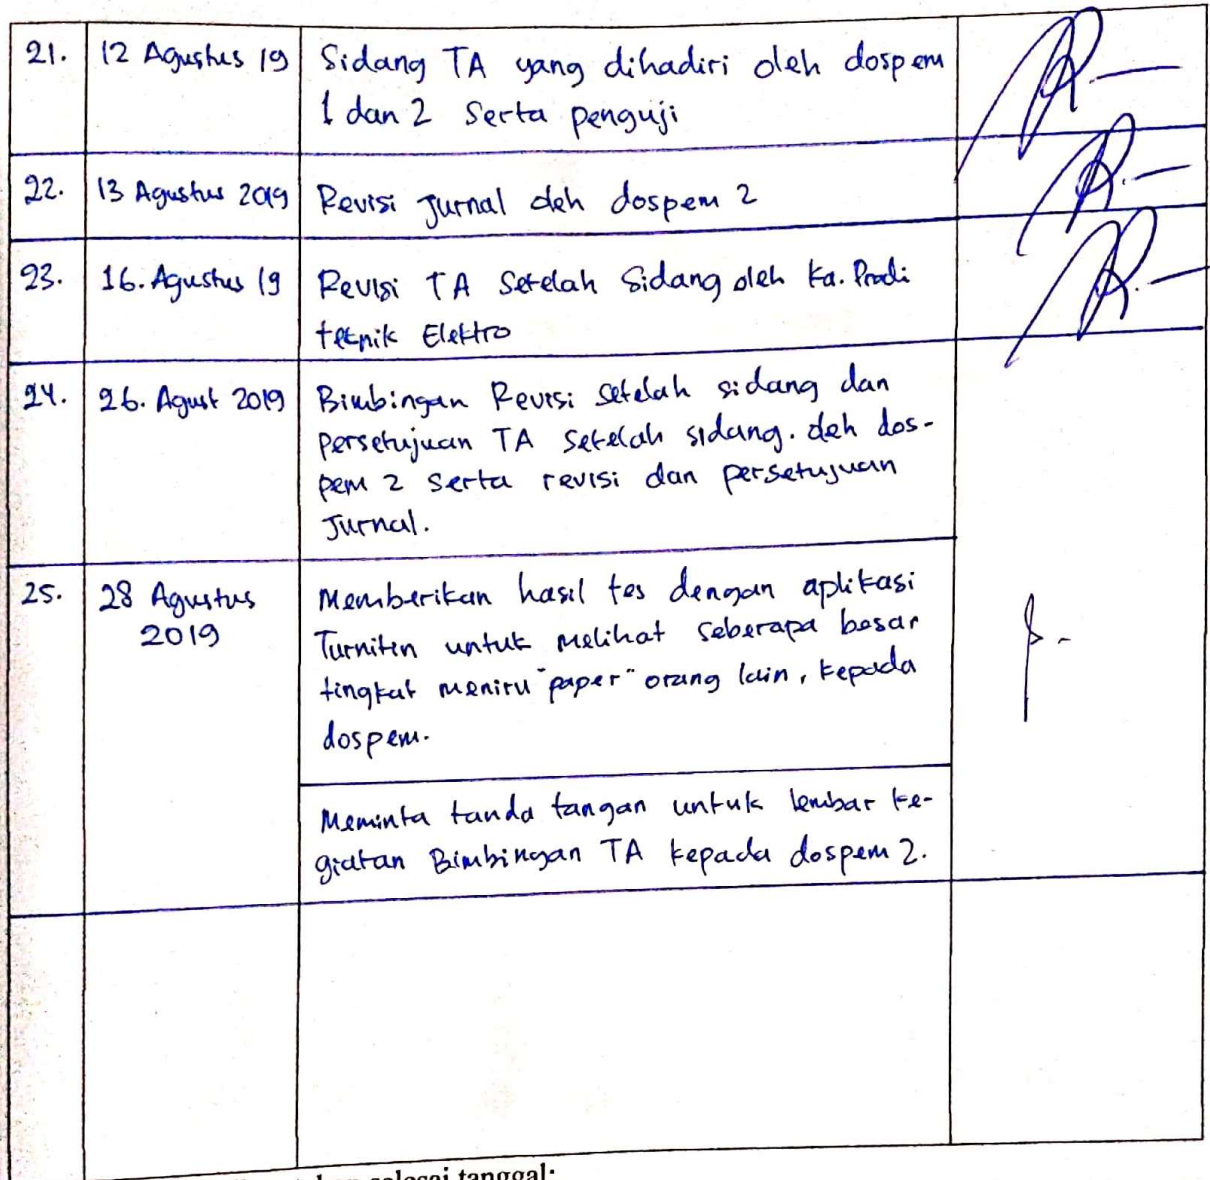 21. 12 Agustus 19 Sidang TA yang dihadiri oleh dospem
1 dan 2 Serta penguji
22. 13 Agustus 2019 Revisi Jurnal oleh dospem 2
23. 16. Agustus 19 Revisi TA Setelah Sidang oleh Ka. Prodi
teknik Elektro
24. 26. Agust 2019 Bimbingan Revisi setelah sidang dan
persetujuan TA Setelah sidang. oleh dos-
pem 2 serta revisi dan persetujuan
Jurnal.
25. 28 Agustus
2019
Memberikan hasil tes dengan aplikasi
Turnitin untuk melihat seberapa besar
tingkat meniru "paper" orang lain, kepada
dospem.
Meminta tanda tangan untuk lembar ke-
giatan Bimbingan TA kepada dospem 2.
selesai tanggal: